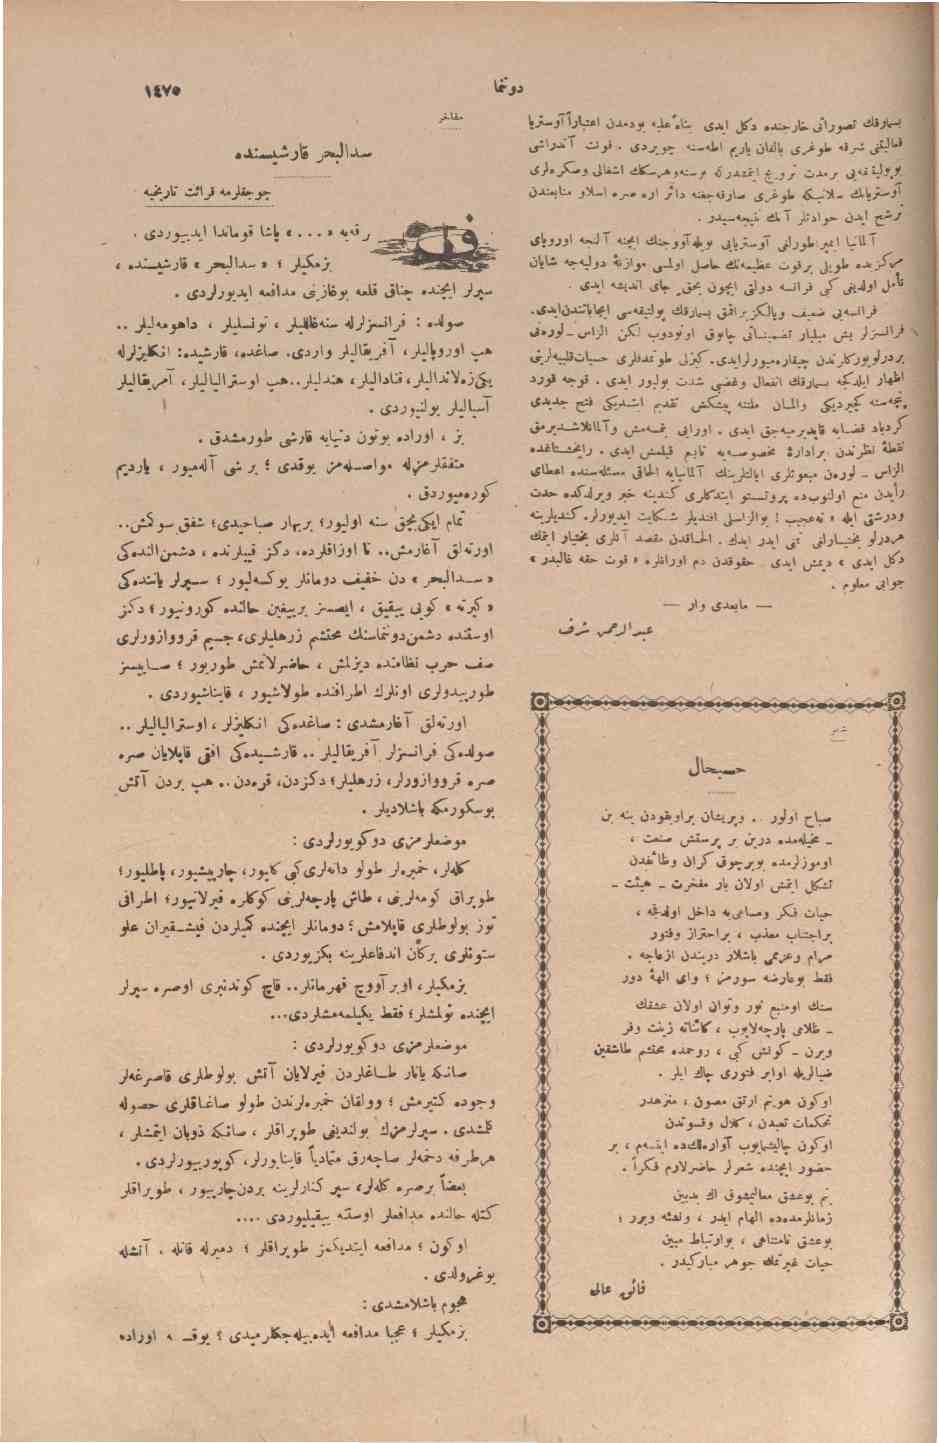 دوننما
١٤٧٥
بسمارقك تصوراتی خارجنده دكل ايدی بناءً عليه بودمدن اعتباراً آوستريا
فعاليتنی شرقه طوغری بالقان ياريم اطه‌سنه چويردی . قونت آندراشی
آوستريانك سلانيكه طوغری صارقه‌جغنه دائر اره صره اسلاو منابعندن
ترشح ايدن حوادثلر آنك نتيجه‌سيدر .
آلمانيا ايمپراطورلغی آوستريايی بويله آووجنك ايچنه آلنجه اوروپای
مركزيده طوپلی برقوت عظيمه‌نك حاصل اولمسی موازنهٔ دوليه‌جه شايان
تأمل اولديغی كبی فرانسه دولتی ايچون بحق جای انديشه ايدی .
فرانسه‌يی ضعيف ويالكز براقق بسمارقك پولتيقه‌سی ايجاباتندن‌ايدی.
فرانسزلر بش ميليار تضمينــاتی چابوق اونودوب لكن الزاس ــ لوره‌نی
بردرلو يوركلرندن چيقاره‌ميورلرايدی. كيزلی طوتمدقلری حسيات قلبيه‌لرينی
اظهار ايلدكجه بسمارقك انفعال وغضبی شدت بوليور ايدی . قوجه قورد
پنجه‌سنه كچيرديكی والمــان ملتنه پيشكش تقديم ايتــديكی فتح جديدی
نقطهٔ نظرندن برادارهٔ مخصوصــه‌يه تابع قيلمش ايدی . رايخشتاغده
الزاس ــ لوره‌ن مبعوثلری ايالتلرينك آلمانيايه الحاقی مسئله‌سنده اعطای
رأيدن منع اولنوب‌ده پروتستو ايتدكلری كندينه خبر ويرلدكده حدت
ودرشتی ايله « نه‌عجيب ! بوالزاسلی افنديلر شــكايت ايديورلر. كنديلرينه
هردرلو بختيارلغی تمنی ايدر ايدك . الحــاقدن مقصد آنلری بختيار ايتمك
دكل ايدی » ديمش ايدی . حقوقدن دم اورانلره « قوت حقه غالبدر »
جوابی معلوم .
— مابعدی وار —
عبدالرحمن شرف
شعر
حسبحال
صباح اولور . . وپريشان براويقودن ينه بن
ــ مخيله‌مده درين بر پرستش صنعت ،
اوموزلرمده بوبرچوق كران وظائفدن
تشكل ايتمش اولان بار مفخرت ــ هيئت ــ
حيات فكر ومساعی‌يه داخل اولدقجه ،
براجتناب معذب ، براحتراز وفتور
مرام وعزممی باشلار دريندن ازعاجه .
فقط بوعارضه سورمز ؛ وای الههٔ دور
سنك اومنبع نور وتوان اولان عشقك
ــ ظلامی پارچه‌لايوب ، كائناته زينت وفر
ويرن ــ كونش كبی ، روحمده محتشم طاشقين
ضيالريله اوابر فتوری چاك ايلر .
اوكون هويتم ارتق مصون ، منزهدر
تحكمات تعبدن ، كلال وقسوتدن
اوكون چاليشمايوب آواره‌لك‌ده ايتسه‌م ، بر
حضور ايچنده شعرلر حاضرلارم فكراً .
بنم بوعشق معاليمشوق اك بدبين
زمانلرمده‌ده الهام ايدر ، ونشئه ويرر ؛
بوعشق نامتناهی ، بوارتباط مبين
حيات غيرتمك جوهر مباركيدر .
فائق عالی
مفاخر
سدالبحر قارشيسنده
چوجقلرمه قرائت تاريخيه
رقه‌يه « . . . » پاشا قوماندا ايديـيوردی .
بزمكيلر ؛ « سدالبحر » قارشيســنده ،
سپرلر ايچنده چناق قلعه بوغازينی مدافعه ايديورلردی .
صولده : فرانسزلرله سنه‌غاللیلر ، تونسليلر ، داهومه‌ليلر ..
هپ اوروپاليلر ، آفريقاليلر واردی. صاغده، قارشيده: انكليزلرله
يكی‌زه‌لاندالیلر، قنادالیلر، هندليلر..هپ اوستراليالیلر، آمريقاليلر
آسيالیلر بولنيوردی .
بز ، اوراده بوتون دنيايه قارشی طورمشدق .
متفقلرمزله مواصــله‌مز يوقدی ؛ بر شی آله‌ميور ، يارديم
كوره‌ميوردق .
تمام ايكی‌بچق سنه اوليور؛ بربهار صباحيدی؛ شفق سوكمش..
اورته‌لق آغارمش.. تا اوزاقلرده، دكز قيیلرنده ، دشمن‌النده‌كی
« ســدالبحر » دن خفيف دومانلر يوكسه‌ليور ؛ ســپرلر ياننده‌كی
« كيرته » كويی ييقيق ، ايصسز برييغين حالنده كورونيور؛ دكز
اوستنده دشمن‌دوننماسنك محتشم زرهليلری، جسيم قرووازورلری
صف حرب نظامنده ديزلمش ، حاضرلانمش طورييور ؛ صــاييسز
طورپيدولری اونلرك اطرافنده طولاشيور ، قايناشيوردی .
اورته‌لق آغارمشدی : صاغده‌كی انكليزلر ، اوستراليالیلر ..
صولده‌كی فرانسزلر آفريقاليلر .. قارشــيده‌كی افقی قاپلايان صره
صره قرووازورلر، زرهليلر؛ دكزدن، قره‌دن.. هپ بردن آتش
پوسكورمكه باشلاديلر .
موضعلرمزی دوكويورلردی :
كله‌لر، خمبره‌لر طولو دانه‌لری‌كبی كليور، چارپيشيور، پاطليور؛
طوپراق كومه‌لرينی ، طاش پارچه‌لرينی كوكلره فيرلاتيور؛ اطرافی
توز بولوطلری قاپلامش؛ دومانلر ايچنده كميلردن فيشــقيران علو
ستونلری بركان اندفاعلرينه بكزيوردی .
بزمكيلر، اوبر آووچ قهرمانلر.. قاچ كوندنبری اوصره سپرلر
ايچنده تولمشلر؛ فقط ييكيلمه‌مشلردی...
موضعلرمزی دوكويورلردی :
صانكه يانار طــاغلردن فيرلايان آتش بولوطلری قاصرغه‌لر
وجوده كتيرمش ؛ وولقان خمبره‌لرندن طولو صاغناقلری حصوله
كلمشدی . سپرلرمزك بولنديغی طوپراقلر ، صانكه ذوبان ايتمشلر ،
هرطرفه دخمه‌لر صاچه‌رق متمادياً قاينايورلر، كوپورييورلردی .
بعضاً برصره كله‌لر، سپر كنارلرينه بردن‌چارپيور ، طوپراقلر
كتله حالنده مدافعلر اوستنه ييقيليوردی ....
اوكون ؛ مدافعه ايتديكمز طوپراقلر ؛ دميرله قانله ، آتشله
يوغرولدی .
هجوم باشلامشدی :
بزمكيلر ؛ عجبا مدافعه ايده‌بيله‌جكلرميدی ؟ يوقــسه اوراده